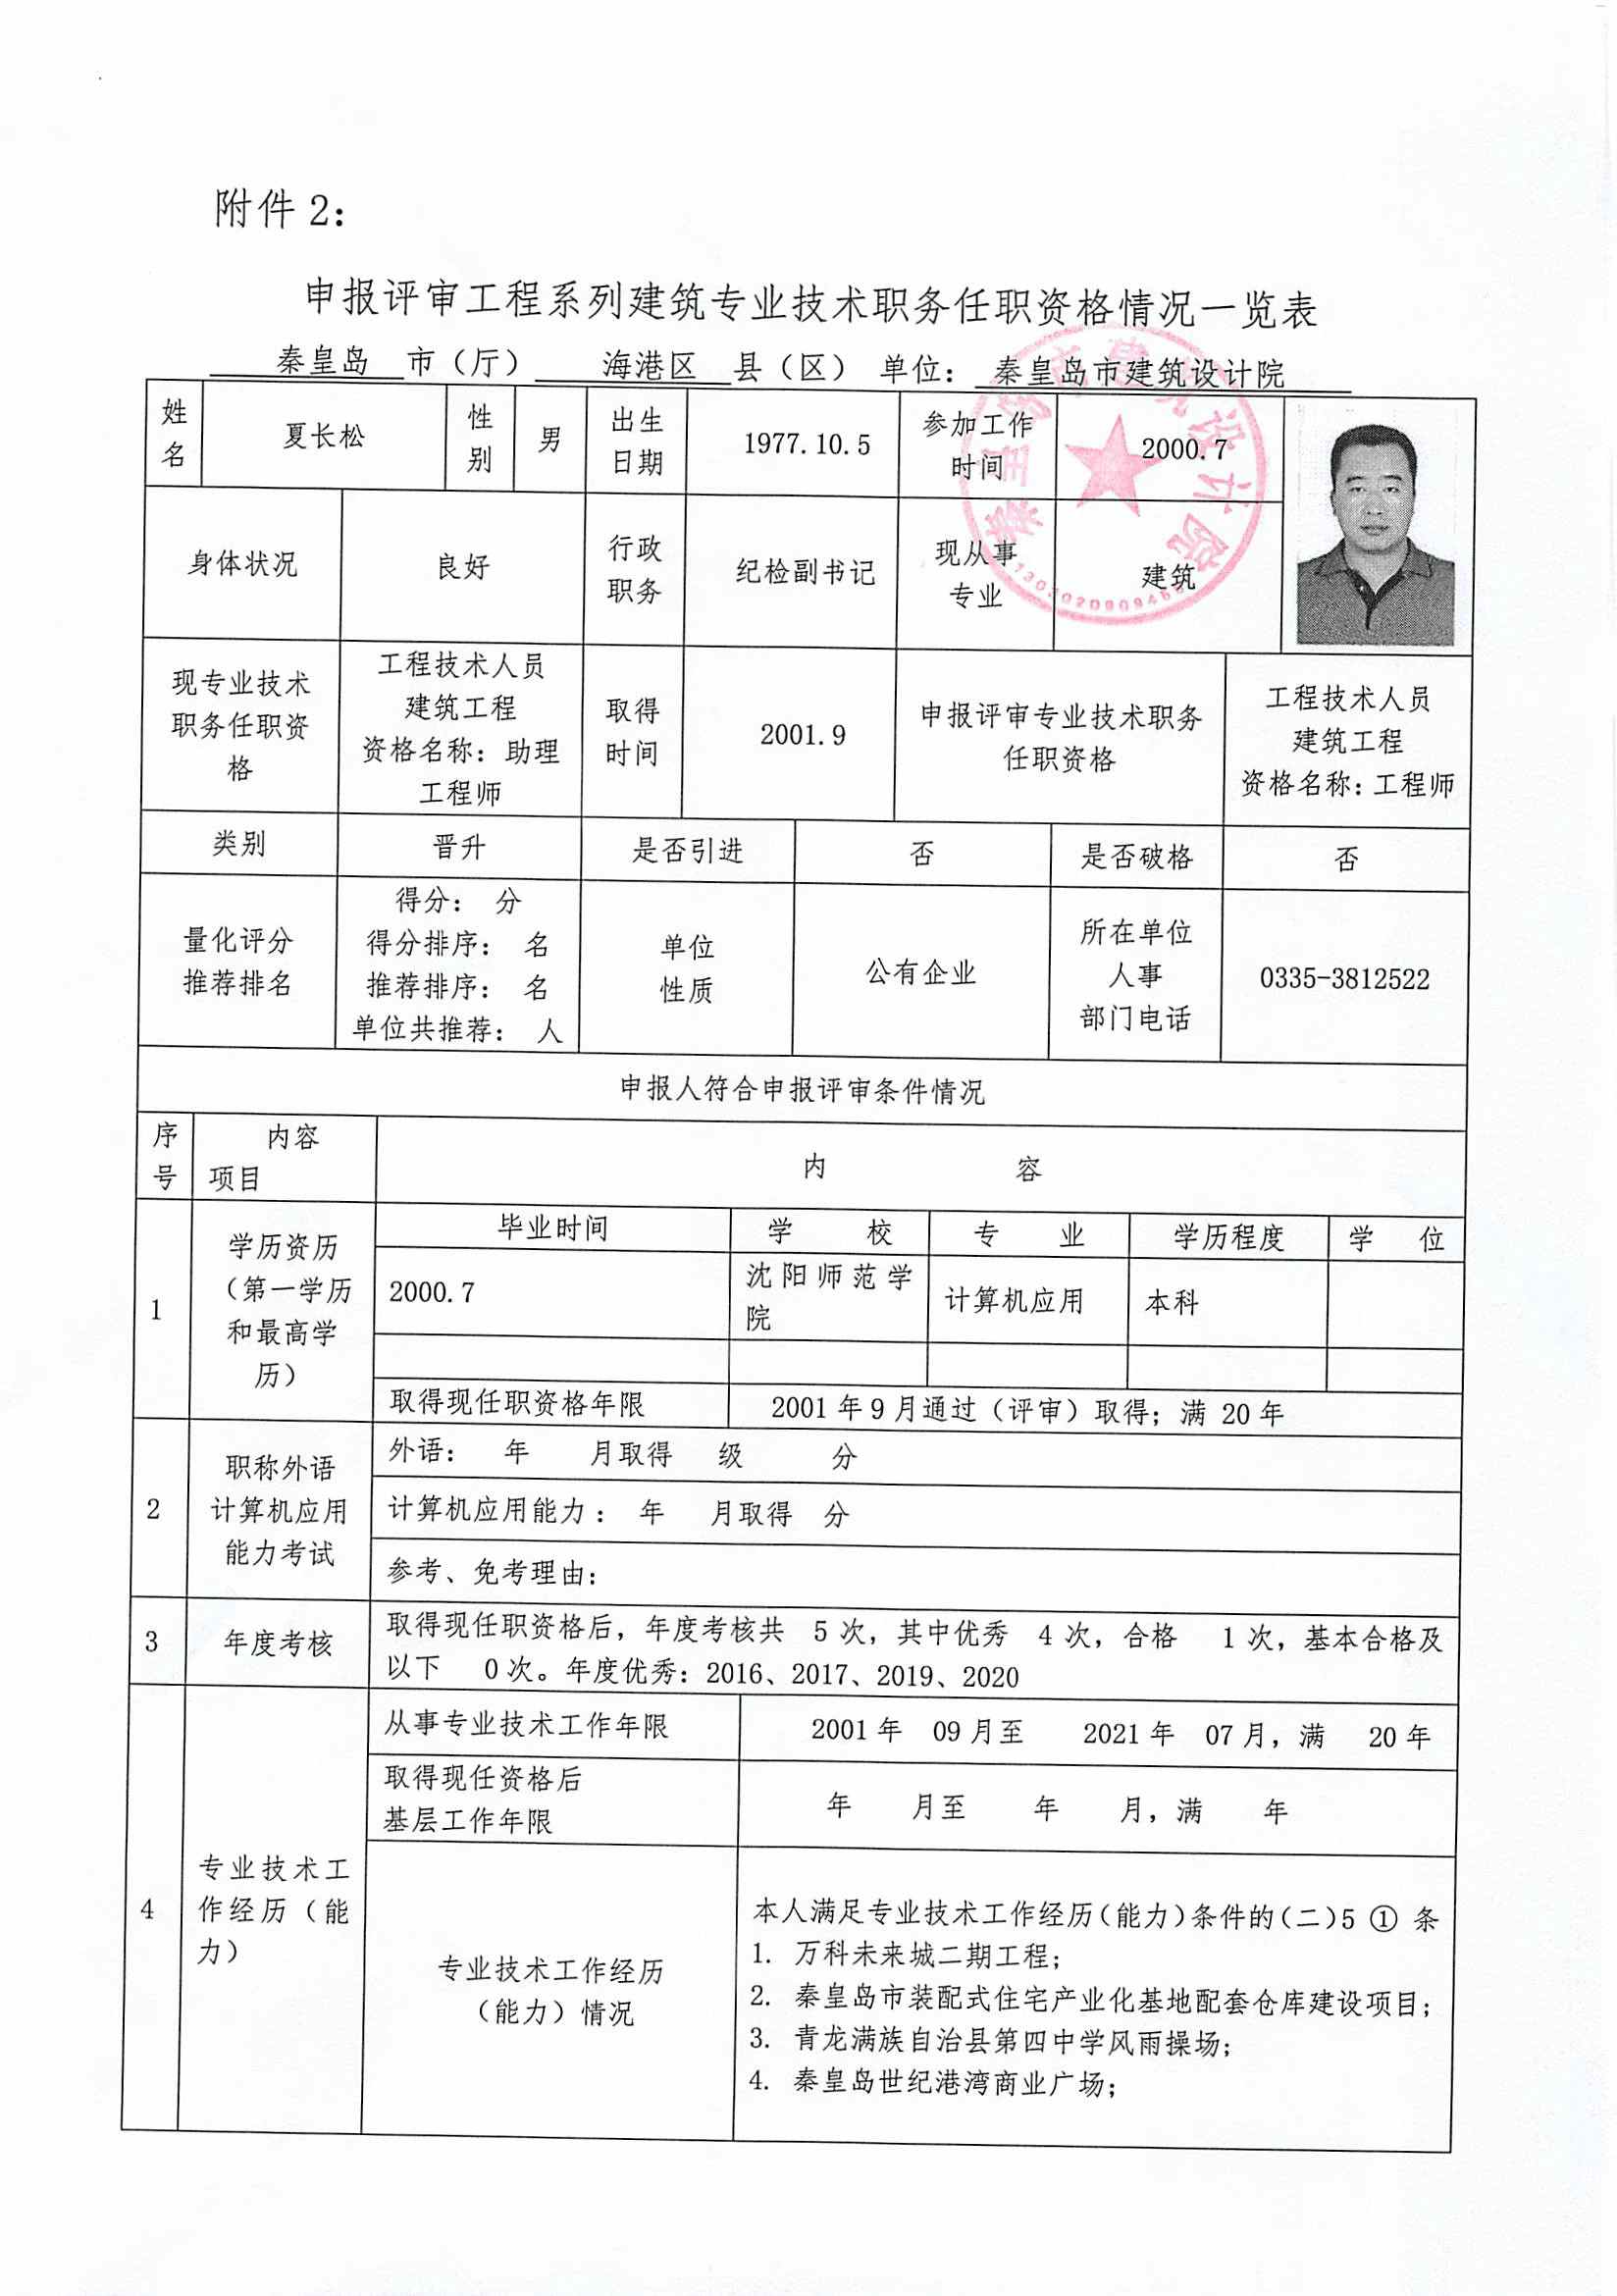 附件 2：
申报评审工程系列建筑专业技术职务任职资格情况一览表
秦皇岛 市（厅） 海港区 县（区） 单位： 秦皇岛市建筑设计院
姓名 夏长松 性别 男 出生日期 1977.10.5 参加工作时间 2000.7
身体状况 良好 行政职务 纪检副书记 现从事专业 建筑
现专业技术职务任职资格 工程技术人员 建筑工程 资格名称：助理工程师 取得时间 2001.9 申报评审专业技术职务任职资格 工程技术人员 建筑工程 资格名称：工程师
类别 晋升 是否引进 否 是否破格 否
量化评分推荐排名 得分： 分 得分排序： 名 推荐排序： 名 单位共推荐： 人 单位性质 公有企业 所在单位人事部门电话 0335-3812522
申报人符合申报评审条件情况
序号 内容 项目 内 容
1 学历资历（第一学历和最高学历） 毕业时间 学 校 专 业 学历程度 学 位
2000.7 沈阳师范学院 计算机应用 本科
取得现任职资格年限 2001 年 9 月通过（评审）取得；满 20 年
2 职称外语计算机应用能力考试 外语： 年 月取得 级 分
计算机应用能力： 年 月取得 分
参考、免考理由：
3 年度考核 取得现任职资格后，年度考核共 5 次，其中优秀 4 次，合格 1 次，基本合格及
以下 0 次。年度优秀：2016、2017、2019、2020
4 专业技术工作经历（能力） 从事专业技术工作年限 2001 年 09 月至 2021 年 07 月，满 20 年
取得现任资格后基层工作年限 年 月至 年 月，满 年
专业技术工作经历（能力）情况 本人满足专业技术工作经历（能力）条件的（二）5 ① 条
1. 万科未来城二期工程；
2. 秦皇岛市装配式住宅产业化基地配套仓库建设项目；
3. 青龙满族自治县第四中学风雨操场；
4. 秦皇岛世纪港湾商业广场；
秦皇岛市建筑设计院